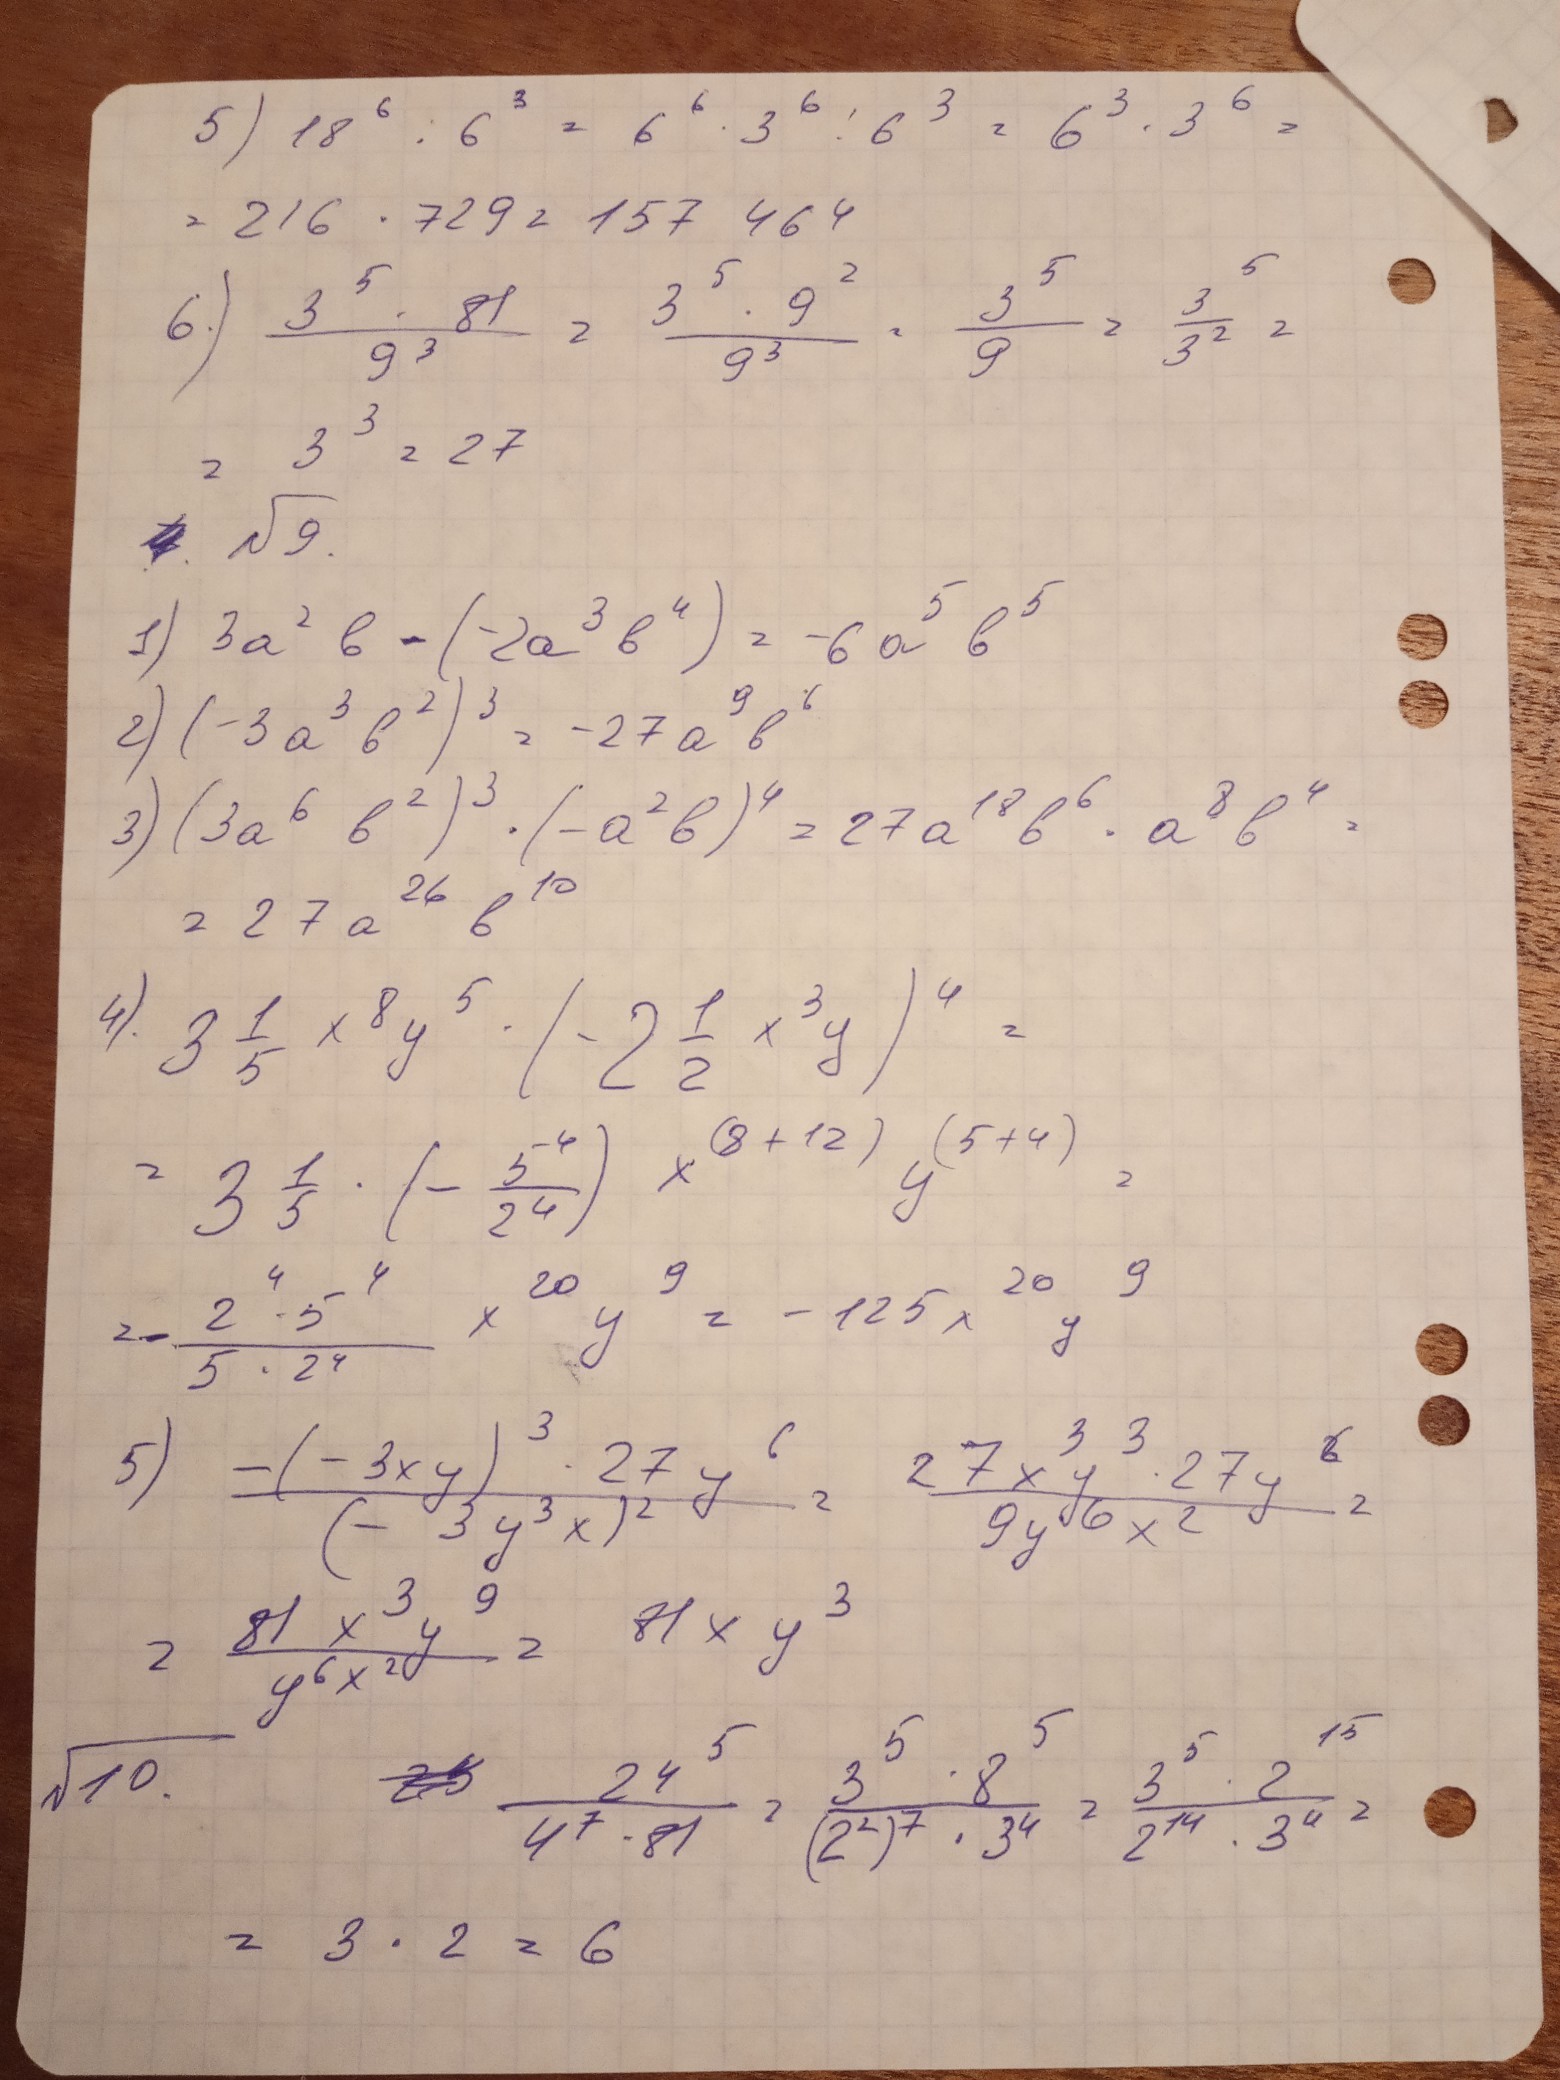 5) 18⁶ : 6³ = 6⁶ · 3⁶ : 6³ = 6³ · 3⁶ =
= 216 · 729 = 157 464
6.) (3⁵ · 81)/(9³) = (3⁵ · 9²)/(9³) = 3⁵/9 = 3⁵/3² =
= 3³ = 27
√9.
1) 3a²b - (-2a³b⁴) = -6a⁵b⁵
2) (-3a³b²)³ = -27a⁹b⁶
3) (3a⁶b²)³ · (-a²b)⁴ = 27a¹⁸b⁶ · a⁸b⁴ =
= 27a²⁶b¹⁰
4). 3 1/5 x⁸y⁵ · (-2 1/2 x³y)⁴ =
= 3 1/5 · (- 5⁴/2⁴) x⁽⁸⁺¹²⁾ y⁽⁵⁺⁴⁾ =
= - (2⁴ · 5⁴)/(5 · 2⁴) x²⁰y⁹ = -125x²⁰y⁹
5) (-(-3xy)³ · 27y⁶)/((-3y³x)²) = (27x³y³ · 27y⁶)/(9y⁶x²) =
= (81x³y⁹)/(y⁶x²) = 81xy³
√10. 24⁵/(4⁷ · 81) = (3⁵ · 8⁵)/((2²)⁷ · 3⁴) = (3⁵ · 2¹⁵)/(2¹⁴ · 3⁴) =
= 3 · 2 = 6